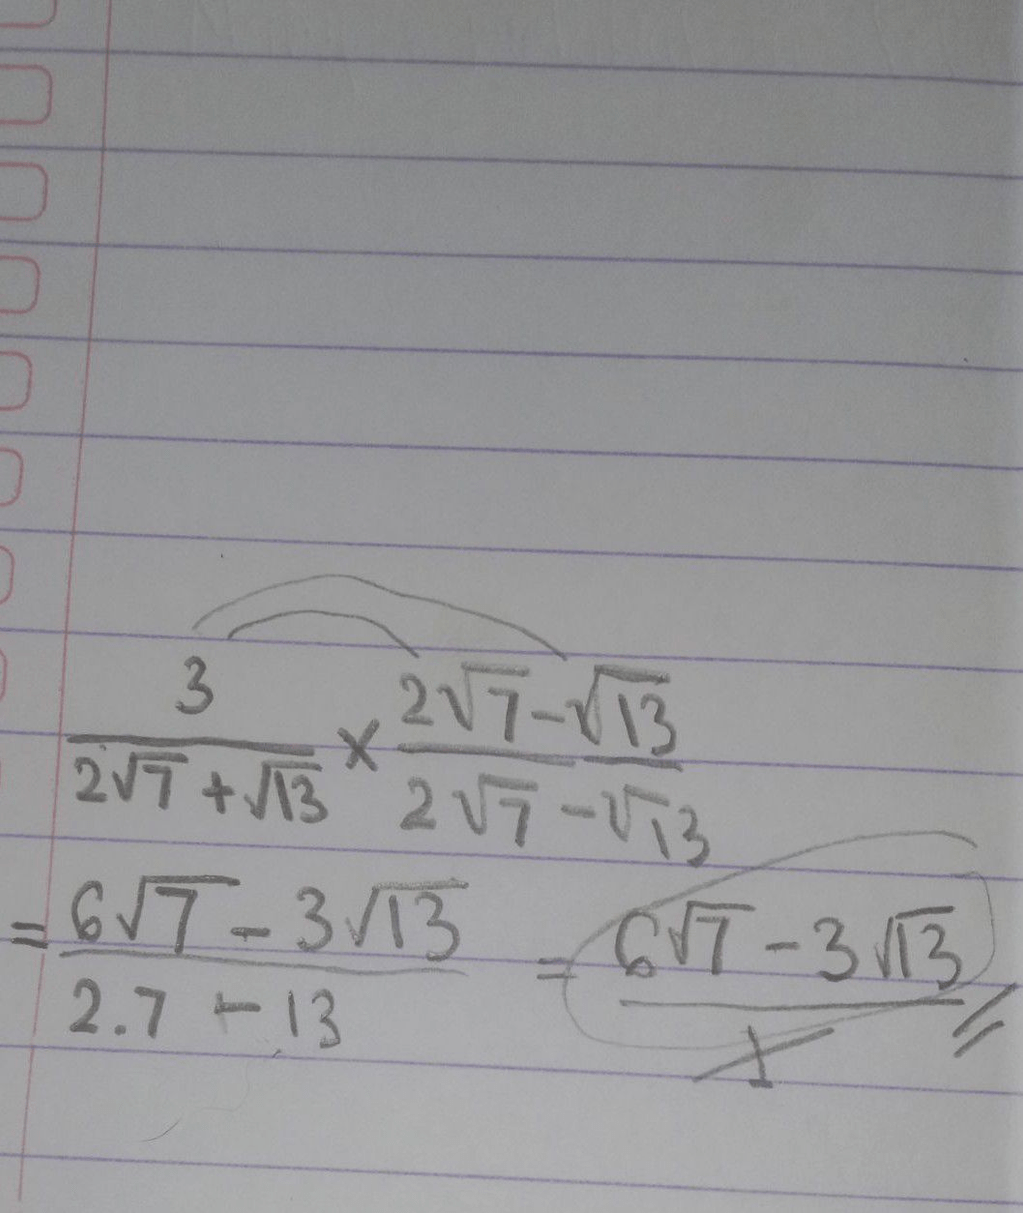 3/(2√7 + √13) × (2√7 - √13)/(2√7 - √13)
= (6√7 - 3√13)/(2.7 - 13) = (6√7 - 3√13)/1